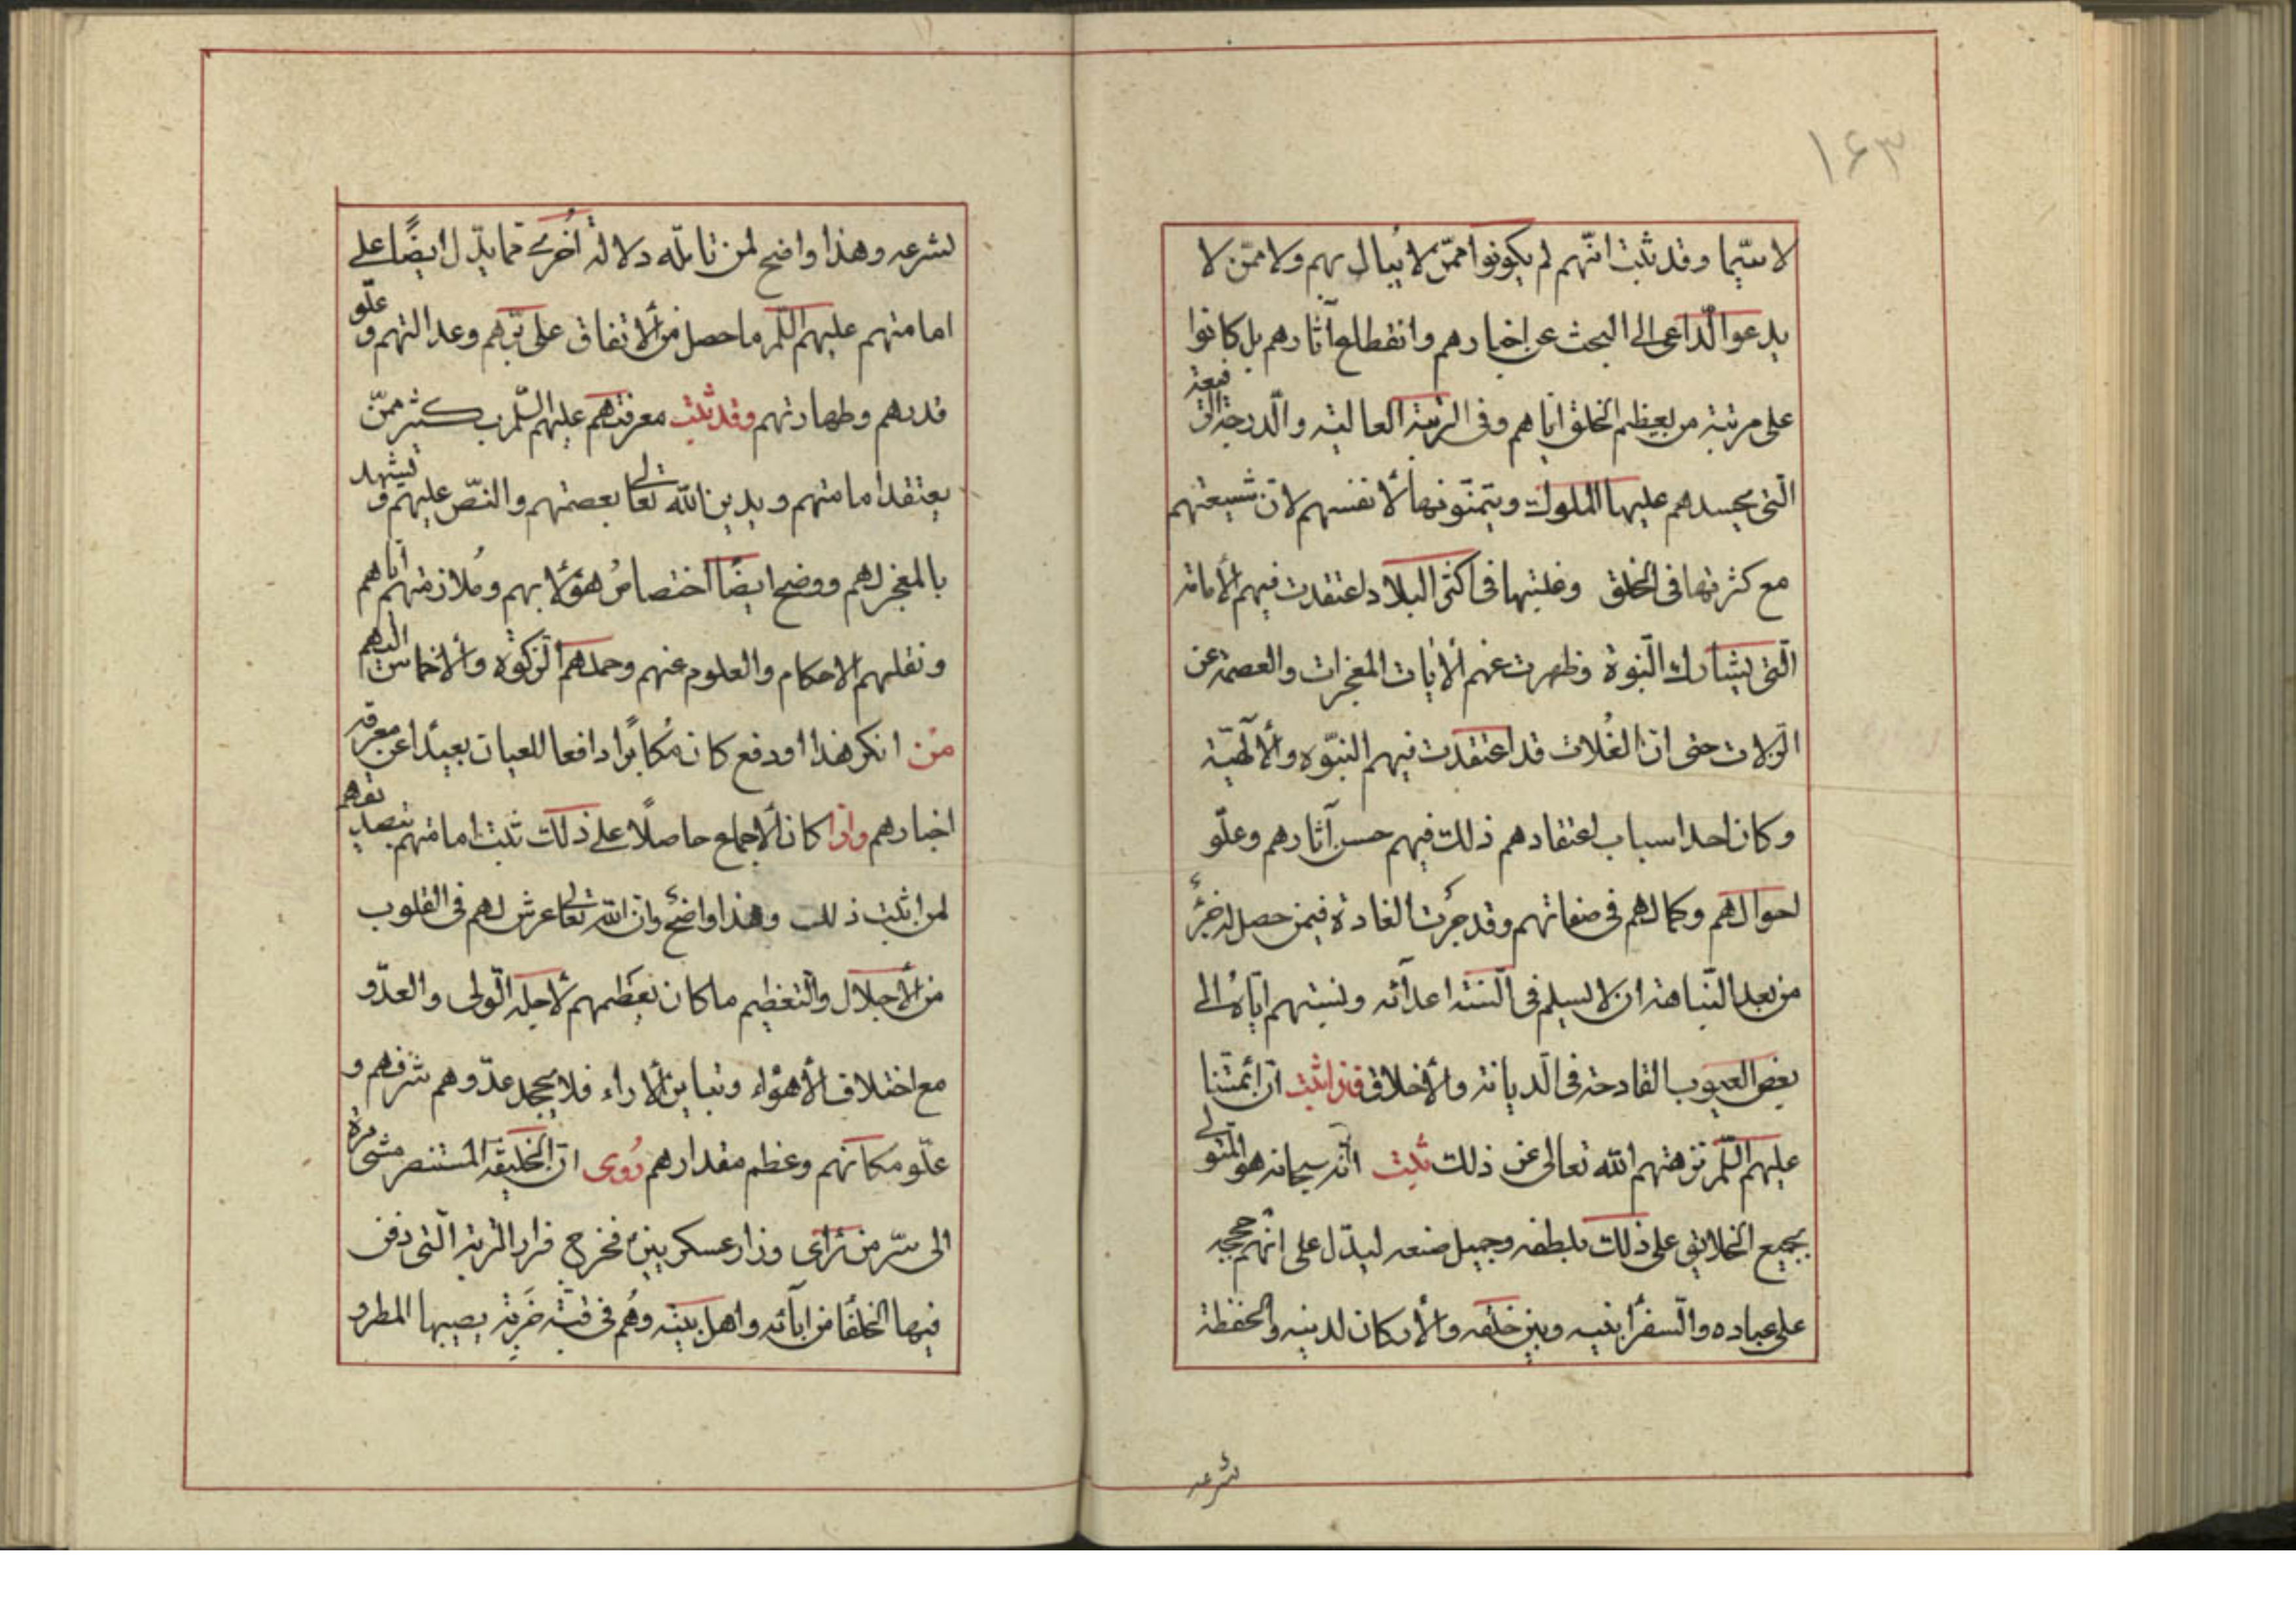 ۱۶۳
لا سیّما و قد ثبت انّهم لم یکونوا ممّن لا یبال بهم ولا ممّن لا
یدعوا الدّاعی الی البحث عن اخبارهم وانقطاع آثارهم بل کانوا
علی مرتبة من یعظم الخلق ایّاهم وفی الرتبة العالیة والدرجة الرفیعة
الّتی یحسدهم علیها الملوک ویتمنّونها لأنفسهم لانّ شیعتهم
مع کثرتها فی الخلق وغلبتها فی اکثر البلاد اعتقدت فیهم الأمامة
الّتی یشارک النّبوة وظهرت عنهم الأیات المعجزات والعصمة عن
الزلات حتی انّ الغُلات قد اعتقدت فیهم النبّوه والألهیّة
وکان احد اسباب اعتقادهم ذلک فیهم حسن آثارهم وعلّو
احوالهم وکمالهم فی صفاتهم وقد جرَت العادة فیمن حصل له جزءٌ
من بعد النّباهة ان لا یسلم فی السنة اعدآئه ونسبتهم ایّاهُ الی
بعض العیوب القادحة فی الّدیانة والأخلاق فاذا ثبت انّ أئمّتنا
علیهم السّلم نزههم الله تعالی عن ذلک ثبت انّه سبحانه هو المتولی
بجمیع الخلایق علی ذلک بلطفه وجمیل صنعه لیدّل علی انّهم حججه
علی عباده والّسفرا بینه وبین خلقه والأرکان لدینه والحفظة
لشرعه
لشرعه وهذا واضح لمن تامّله دلالة اُخری ممّا یدّل ایضًا علی
امامتهم علیهم السّلم ما حصل من الأتفاق علی برّهم وعدالتهم و علّو
قدرهم وطهارتهم وقد ثبت معرفتهم علیهم السّلم بکثیر ممّن
یعتقد امامتهم ویدین الله تعالی بعصمتهم والنصّ علیهم و یشهد
بالمعجز لهم ووضح ایضًا اختصاصُ هؤلآ بهم ومُلازمتهم ایّاهم
ونقلهم الاحکام والعلوم عنهم وحملهم الزکوة والأخماس الیهم
من انکر هذا او دفع کان مُکابرًا دافعا للعیان بعیدًا عن معرفة
اخبارهم واذا کان الأجماع حاصلًا علی ذلک ثبت امامتهم بتصدیقهم
لمن اثبت ذلک وهذا واضحٌ وانّ الله تعالی عرش لهم فی القلوب
من الأجلال والتعظیم ما کان یعظمهم لأجله الّولی والعدّو
مع اختلاف الأهوٰاء وتباین الأراء فلا یجحد عدّوهم شرفهم و
علّو مکانهم وعظم مقدارهم رُوی انّ الخلیفة المستنصر مشی مرة
الی سّر من رٰای وزار عسکریین ع فخرج فزار التربة الّتی دفن
فیها الخلفا من ابآئه واهل بیته وهُم فی قبّة خَرِبة یصیبها المطر و